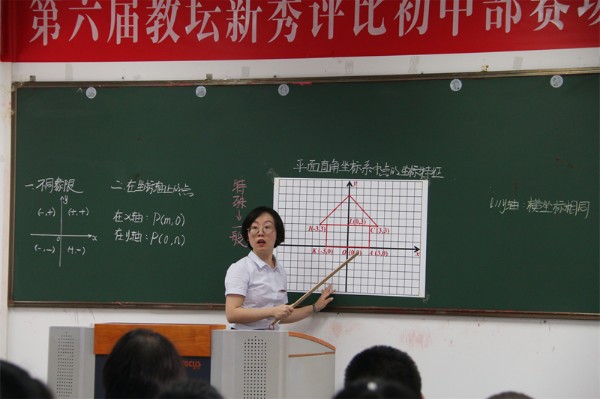 第六届教坛新秀评比初中部赛场
平面直角坐标系中点的坐标特征
一.不同象限
y
(-,+) (+,+)
0 x
(-,-) (+,-)
二.在坐标轴上的点
在x轴:P(m,0)
在y轴:P(0,n)
特殊→一般
y
E(0,3)
B(-3,3) C(3,3)
K(-3,0) O(0,0) A(3,0)
x
l//y轴:横坐标相同